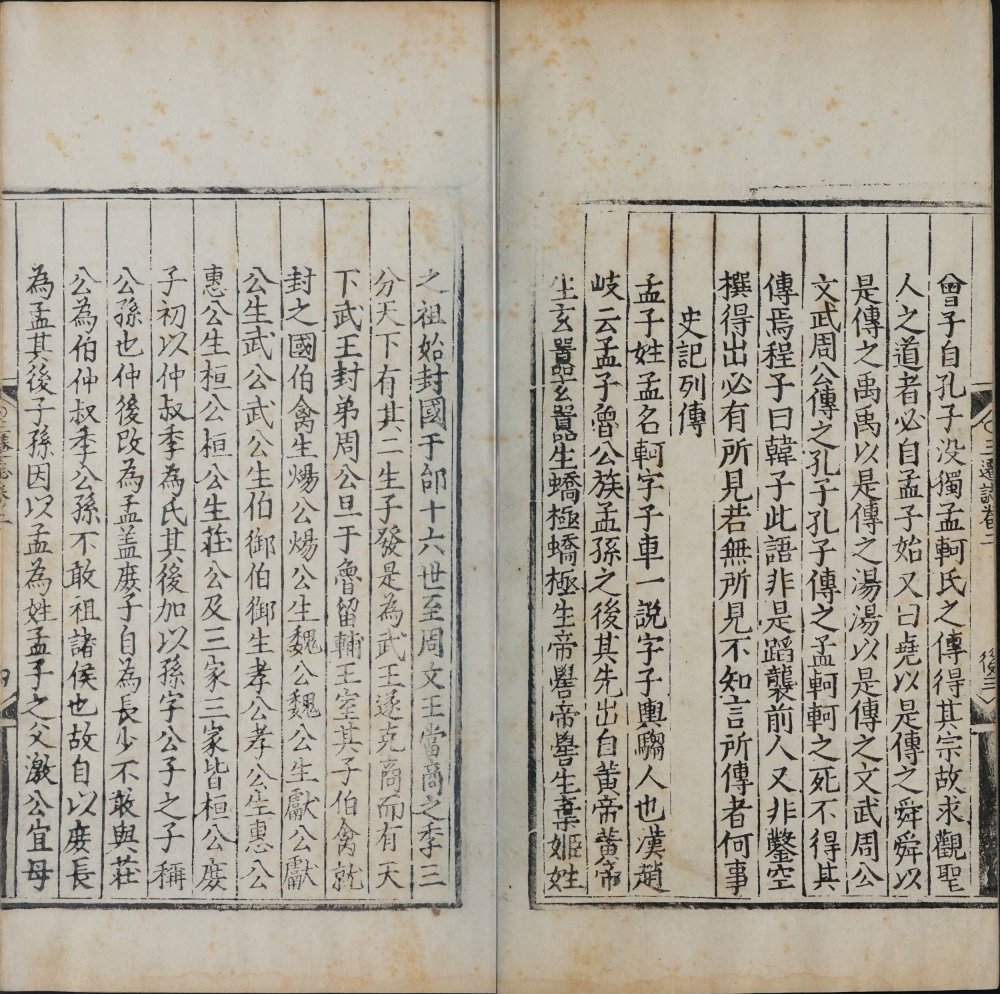 曾子自孔子没獨孟軻氏之傳得其宗故求觀聖
人之道者必自孟子始又曰堯以是傳之舜舜以
是傳之禹禹以是傳之湯湯以是傳之文武周公
文武周公傳之孔子孔子傳之孟軻軻之死不得其
傳焉程子曰韓子此語非是蹈襲前人又非鑿空
撰得出必有所見若無所見不知言所傳者何事
史記列傳
孟子姓孟名軻字子車一説字子輿騶人也漢趙
岐云孟子魯公族孟孫之後其先出自黄帝黄帝
生玄囂玄囂生蟜極蟜極生帝嚳帝嚳生棄姬姓
之祖始封國于邰十六世至周文王當商之季三
分天下有其二生子發是為武王遂克商而有天
下武王封弟周公旦于魯留輔王室其子伯禽就
封之國伯禽生煬公煬公生魏公魏公生獻公獻
公生武公武公生伯御伯御生孝公孝公生惠公
惠公生桓公桓公生莊公及三家三家皆桓公庶
子初以仲叔季為氏其後加以孫字公子之子稱
公孫也仲後改為孟盖庶子自為長少不敢與莊
公為伯仲叔季公孫不敢祖諸侯也故自以庶長
為孟其後子孫因以孟為姓孟子之父激公宜母
三遷誌卷二